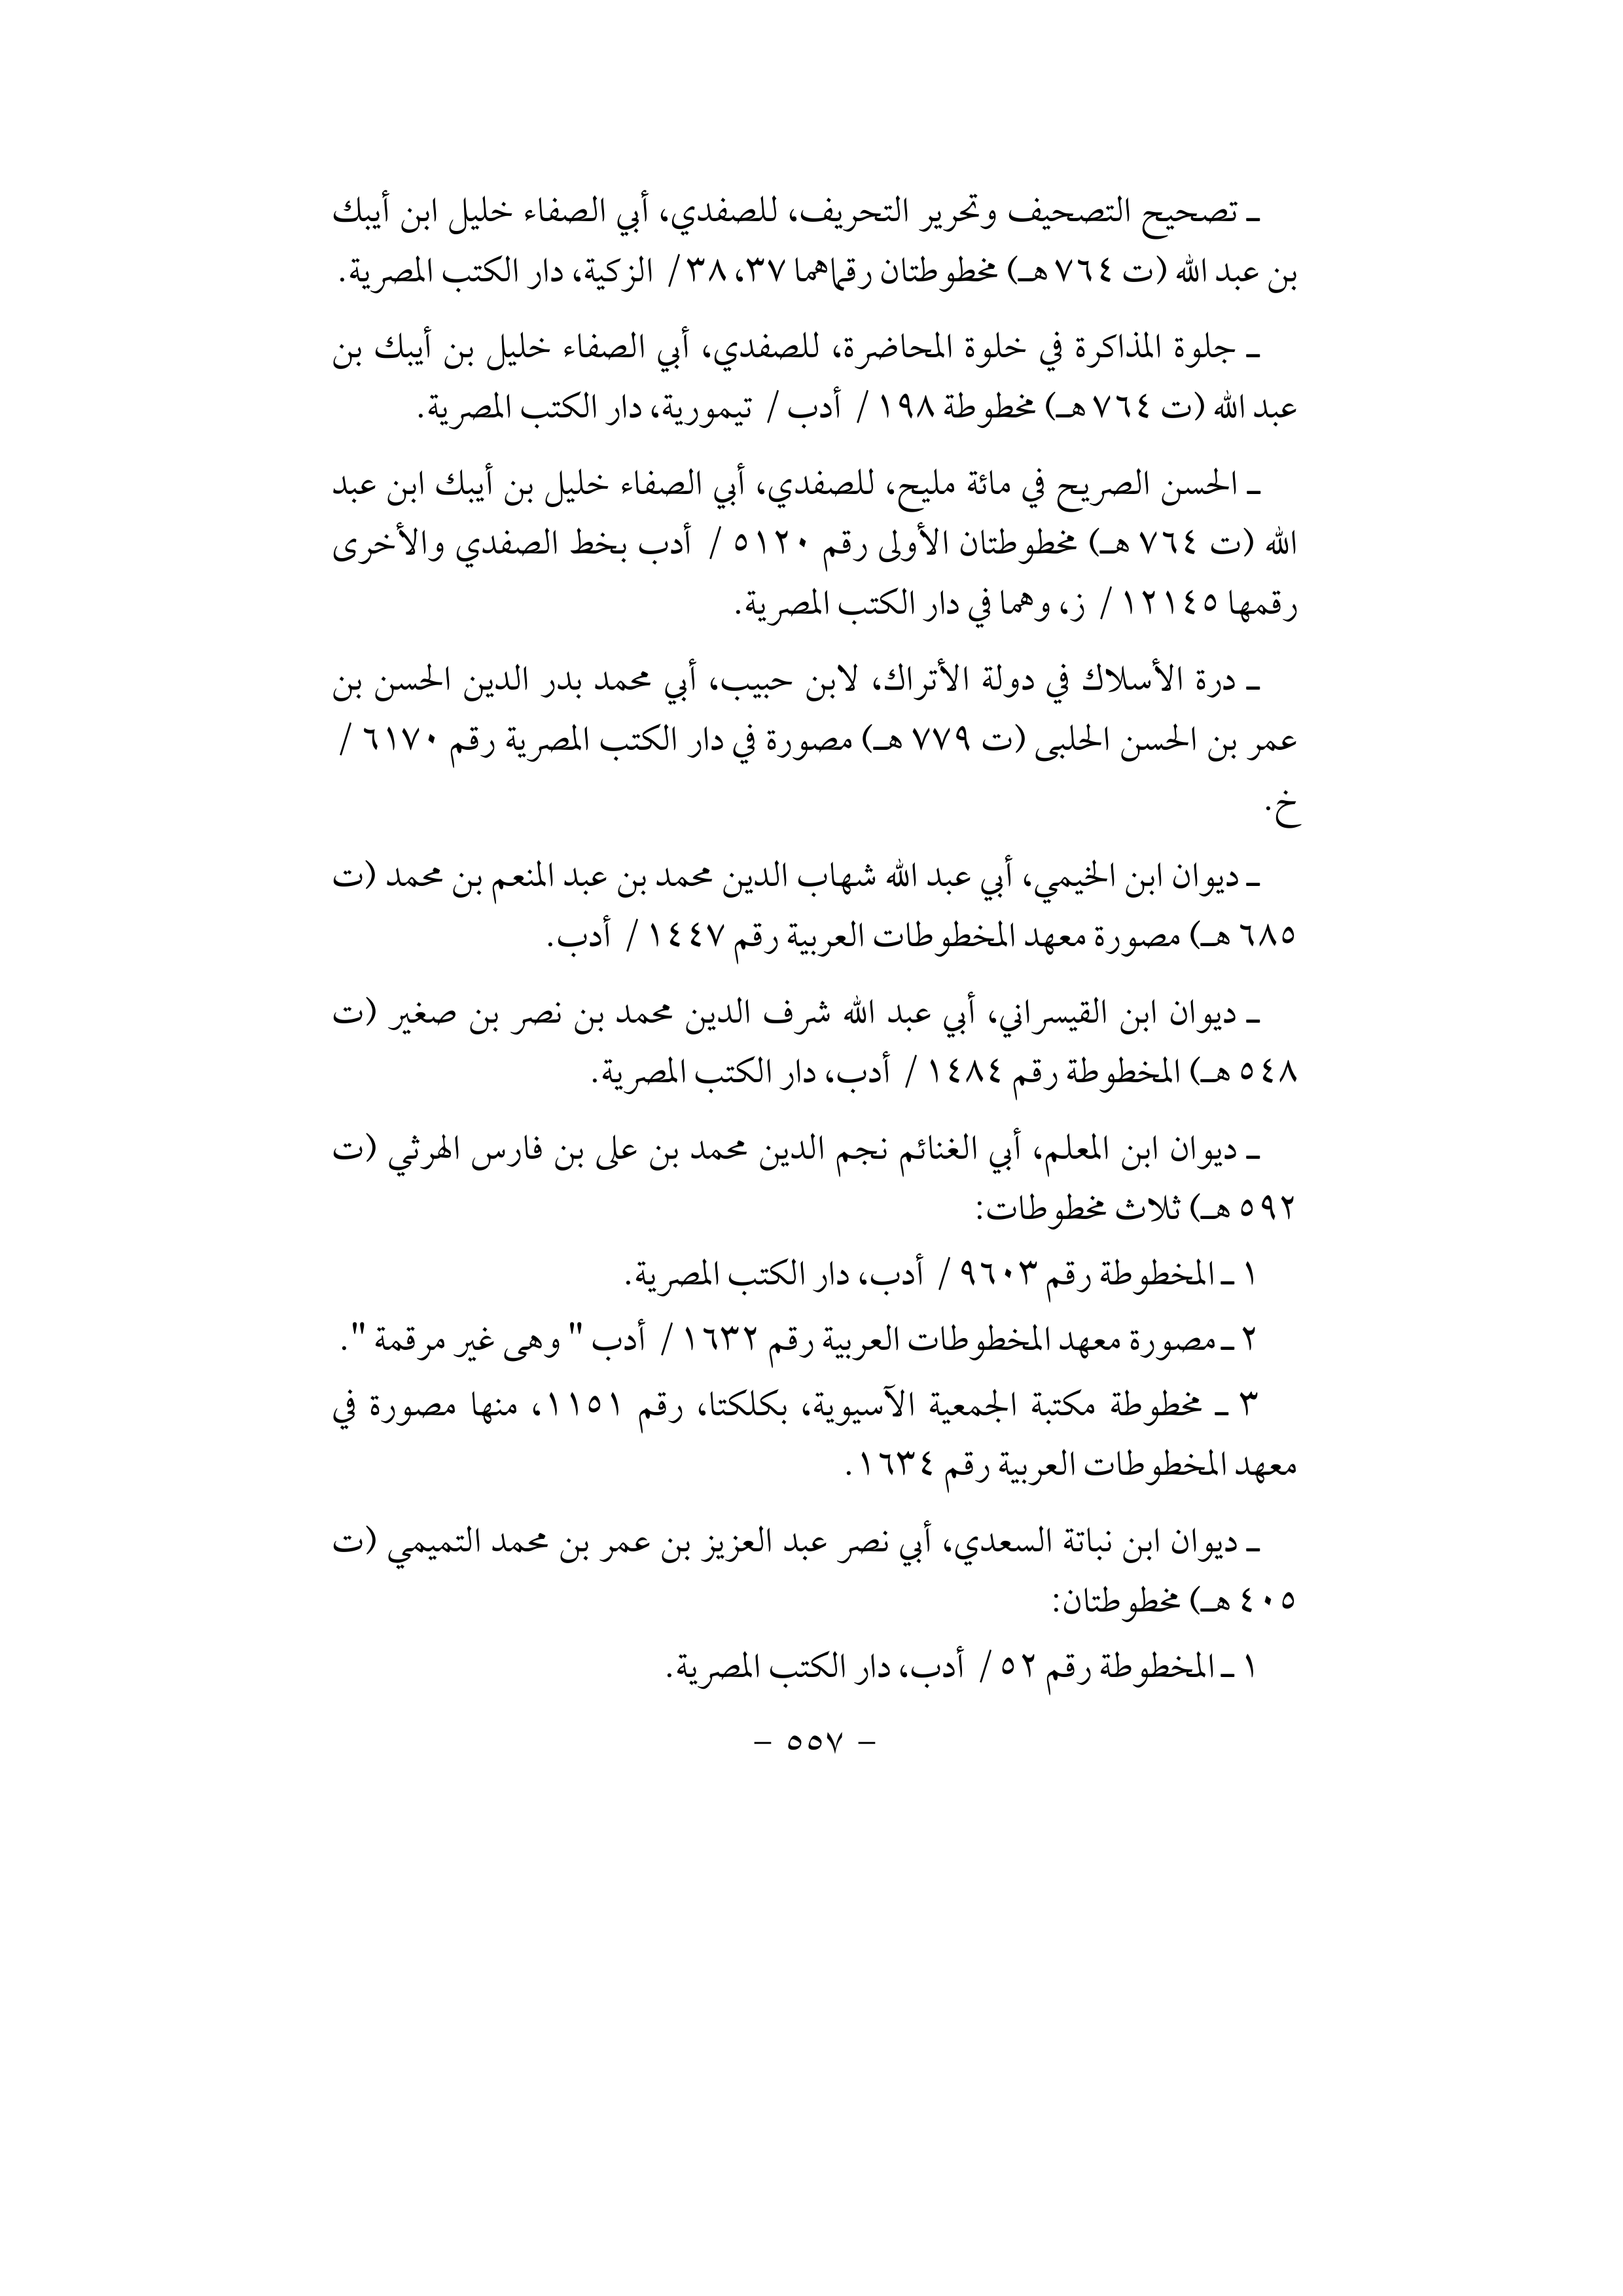 ـ تصحيح التصحيف وتحرير التحريف، للصفدي، أبي الصفاء خليل ابن أيبك
بن عبد الله (ت ٧٦٤ هـ) مخطوطتان رقماهما ٣٧، ٣٨/ الزكية، دار الكتب المصرية.
ـ جلوة المذاكرة في خلوة المحاضرة، للصفدي، أبي الصفاء خليل بن أيبك بن
عبد الله (ت ٧٦٤ هـ) مخطوطة ١٩٨/ أدب/ تيمورية، دار الكتب المصرية.
ـ الحسن الصريح في مائة مليح، للصفدي، أبي الصفاء خليل بن أيبك ابن عبد
الله (ت ٧٦٤ هـ) مخطوطتان الأولى رقم ٥١٢٠/ أدب بخط الصفدي والأخرى
رقمها ١٢١٤٥/ ز، وهما في دار الكتب المصرية.
ـ درة الأسلاك في دولة الأتراك، لابن حبيب، أبي محمد بدر الدين الحسن بن
عمر بن الحسن الحلبى (ت ٧٧٩ هـ) مصورة في دار الكتب المصرية رقم ٦١٧٠/
خ.
ـ ديوان ابن الخيمي، أبي عبد الله شهاب الدين محمد بن عبد المنعم بن محمد (ت
٦٨٥ هـ) مصورة معهد المخطوطات العربية رقم ١٤٤٧/ أدب.
ـ ديوان ابن القيسراني، أبي عبد الله شرف الدين محمد بن نصر بن صغير (ت
٥٤٨ هـ) المخطوطة رقم ١٤٨٤/ أدب، دار الكتب المصرية.
ـ ديوان ابن المعلم، أبي الغنائم نجم الدين محمد بن على بن فارس الهرثي (ت
٥٩٢ هـ) ثلاث مخطوطات:
١ ـ المخطوطة رقم ٩٦٠٣/ أدب، دار الكتب المصرية.
٢ ـ مصورة معهد المخطوطات العربية رقم ١٦٣٢/ أدب " وهى غير مرقمة ".
٣ ـ مخطوطة مكتبة الجمعية الآسيوية، بكلكتا، رقم ١١٥١، منها مصورة في
معهد المخطوطات العربية رقم ١٦٣٤.
ـ ديوان ابن نباتة السعدي، أبي نصر عبد العزيز بن عمر بن محمد التميمي (ت
٤٠٥ هـ) مخطوطتان:
١ ـ المخطوطة رقم ٥٢/ أدب، دار الكتب المصرية.
- ٥٥٧ -